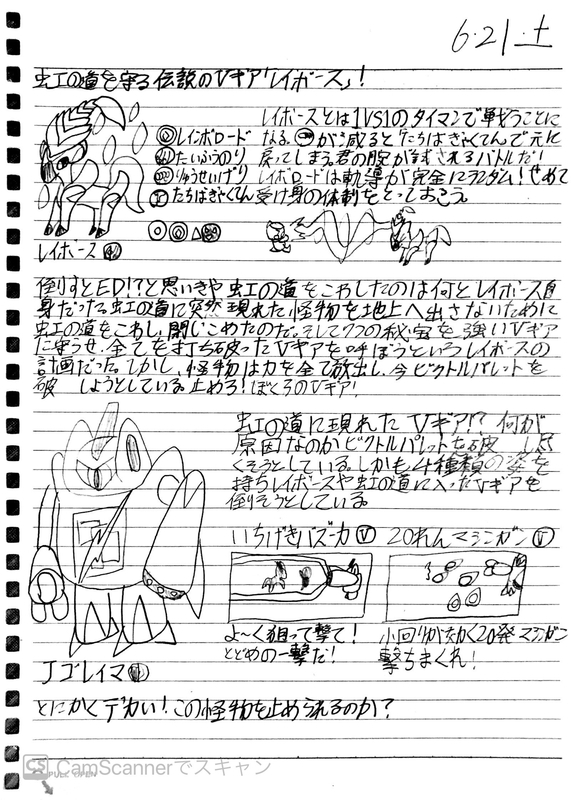 6.21.土
虹の道を守る伝説のVギア「レイボース」!
レイボースとは1VS1のタイマンで戦うことに
レインボロード なる。が減ると「たちばぎゃくてんで元に
たいふうのり 戻ってしまう。君の腕が試されるバトルだ!
りゅうせいげり レイボロードは軌導が完全にランダム!せめて
たちばぎゃくてん 受け身の体制をとっておこう。
レイボース
倒すとED!?と思いきや虹の道をこわしたのは何とレイボース自
身だった。虹の道に突然現れた怪物を地上へ出さないために
虹の道をこわし、閉じこめたのだ。そして7つの秘宝を強いVギア
に守らせ、全てを打ち破ったVギアを呼ぼうというレイボースの
計画だった。しかし、怪物は力を全て放出し、今ビクトルパレットを
破 しようとしている。止めろ!ぼくらのVギア!
虹の道に現れたVギア!?何が
原因なのかビクトルパレットを破 し尽
くそうとしている。しかも4種類の姿を
持ちレイボースや虹の道に入ったVギアを
倒そうとしている
いちげきバズーカ V 20れんマシンガン V
よ~く狙って撃て! 小回りが効く20発マシンガン
とどめの一撃だ! 撃ちまくれ!
Jゴレイマ
とにかくデカい!この怪物を止められるのか?
CS CamScannerでスキャン
PULL OPEN